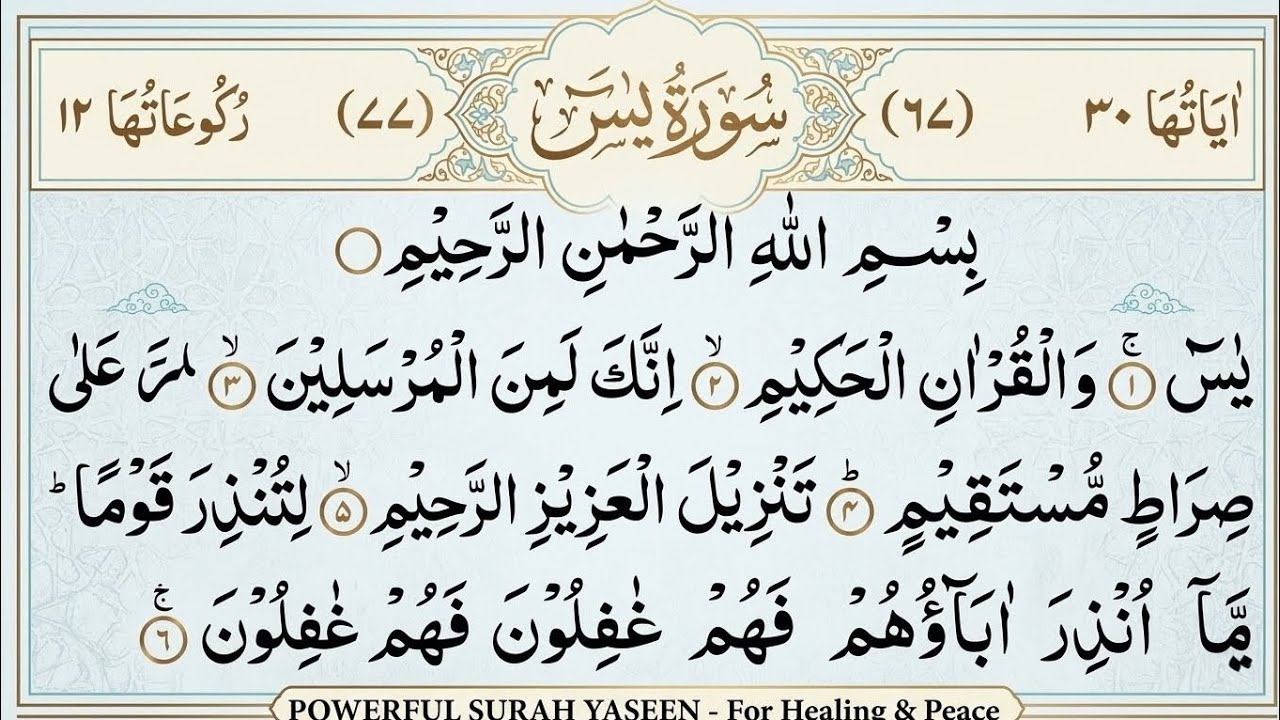 اٰيَاتُهَا ٣٠ (٦٧) سُوْرَةُ يٰسٓ (٧٧) رُكُوعَاتُهَا ١٢
بِسْمِ اللّٰهِ الرَّحْمٰنِ الرَّحِيْمِ
يٰسٓ ۚ ﴿١﴾ وَالْقُرْاٰنِ الْحَكِيْمِ ۙ ﴿٢﴾ اِنَّكَ لَمِنَ الْمُرْسَلِيْنَ ۙ ﴿٣﴾ عَلٰى
صِرَاطٍ مُّسْتَقِيْمٍ ؕ ﴿۴﴾ تَنْزِيْلَ الْعَزِيْزِ الرَّحِيْمِ ۙ ﴿۵﴾ لِتُنْذِرَ قَوْمًا ؕ
مَّآ اُنْذِرَ اٰبَآؤُهُمْ فَهُمْ غٰفِلُوْنَ فَهُمْ غٰفِلُوْنَ ۚ ﴿٦﴾
POWERFUL SURAH YASEEN - For Healing & Peace